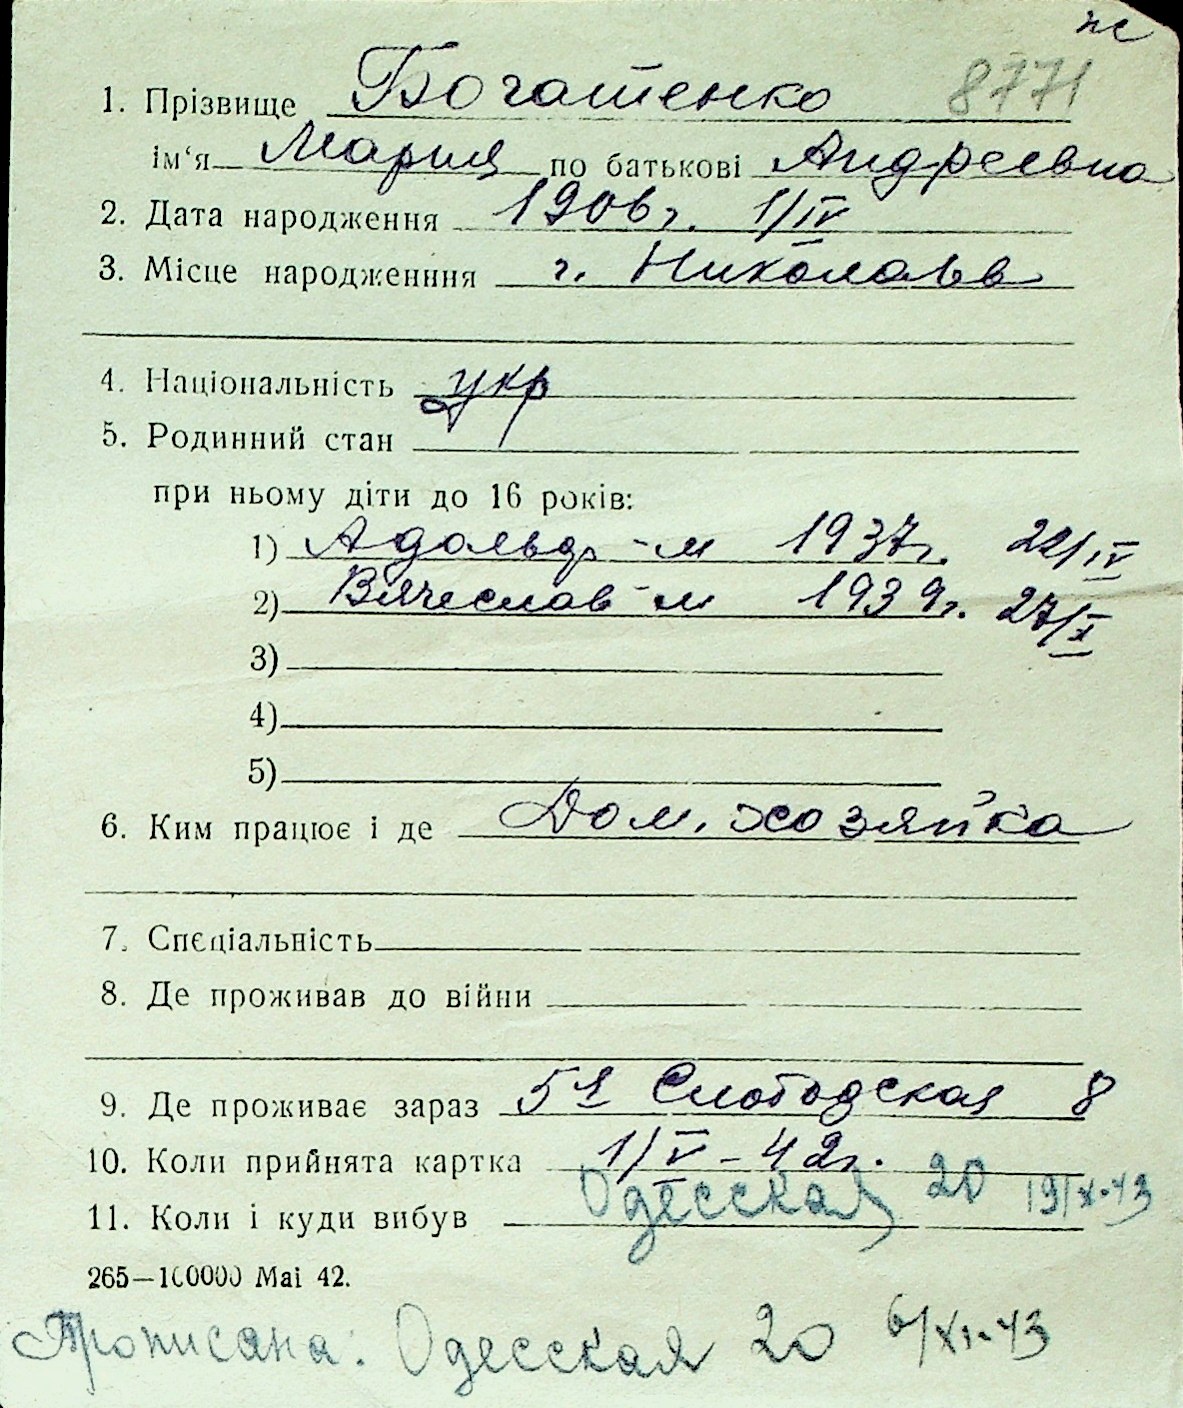 пс
1. Прізвище Богатенко 8771
ім'я Мария по батькові Андреевна
2. Дата народження 1906 г. 1/IV
3. Місце народженння г. Николаев
4. Національність укр
5. Родинний стан
при ньому діти до 16 років:
1) Адольф - м 1937 г. 22/IV
2) Вячеслав - м 1939 г. 27/X
3)
4)
5)
6. Ким працює і де Дом. хозяйка
7. Спеціальність
8. Де проживав до війни
9. Де проживає зараз 5я Слободская 8
10. Коли прийнята картка 1/V - 42 г.
11. Коли і куди вибув Одесская 20 19/X-43
265—100000 Mai 42.
Прописана: Одесская 20 6/XI-43